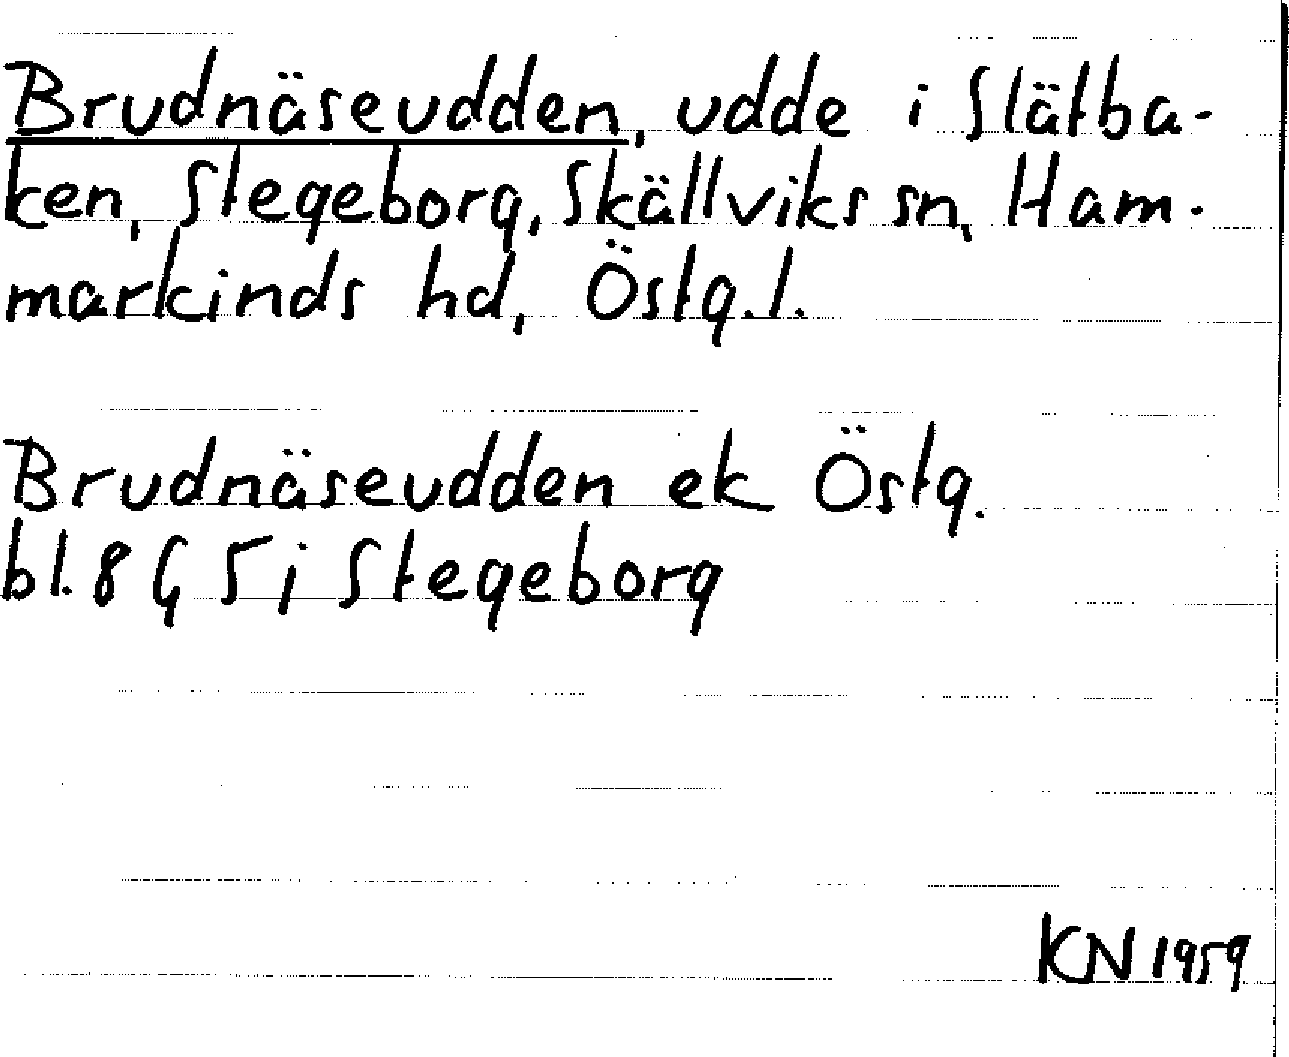 Brudnäseudden, udde i Slätba-
ken, Stegeborg, Skällviks sn, Ham-
markinds hd, Östg.l.
Brudnäseudden ek Östg.
bl. 8 G 5 i Stegeborg
KN 1959